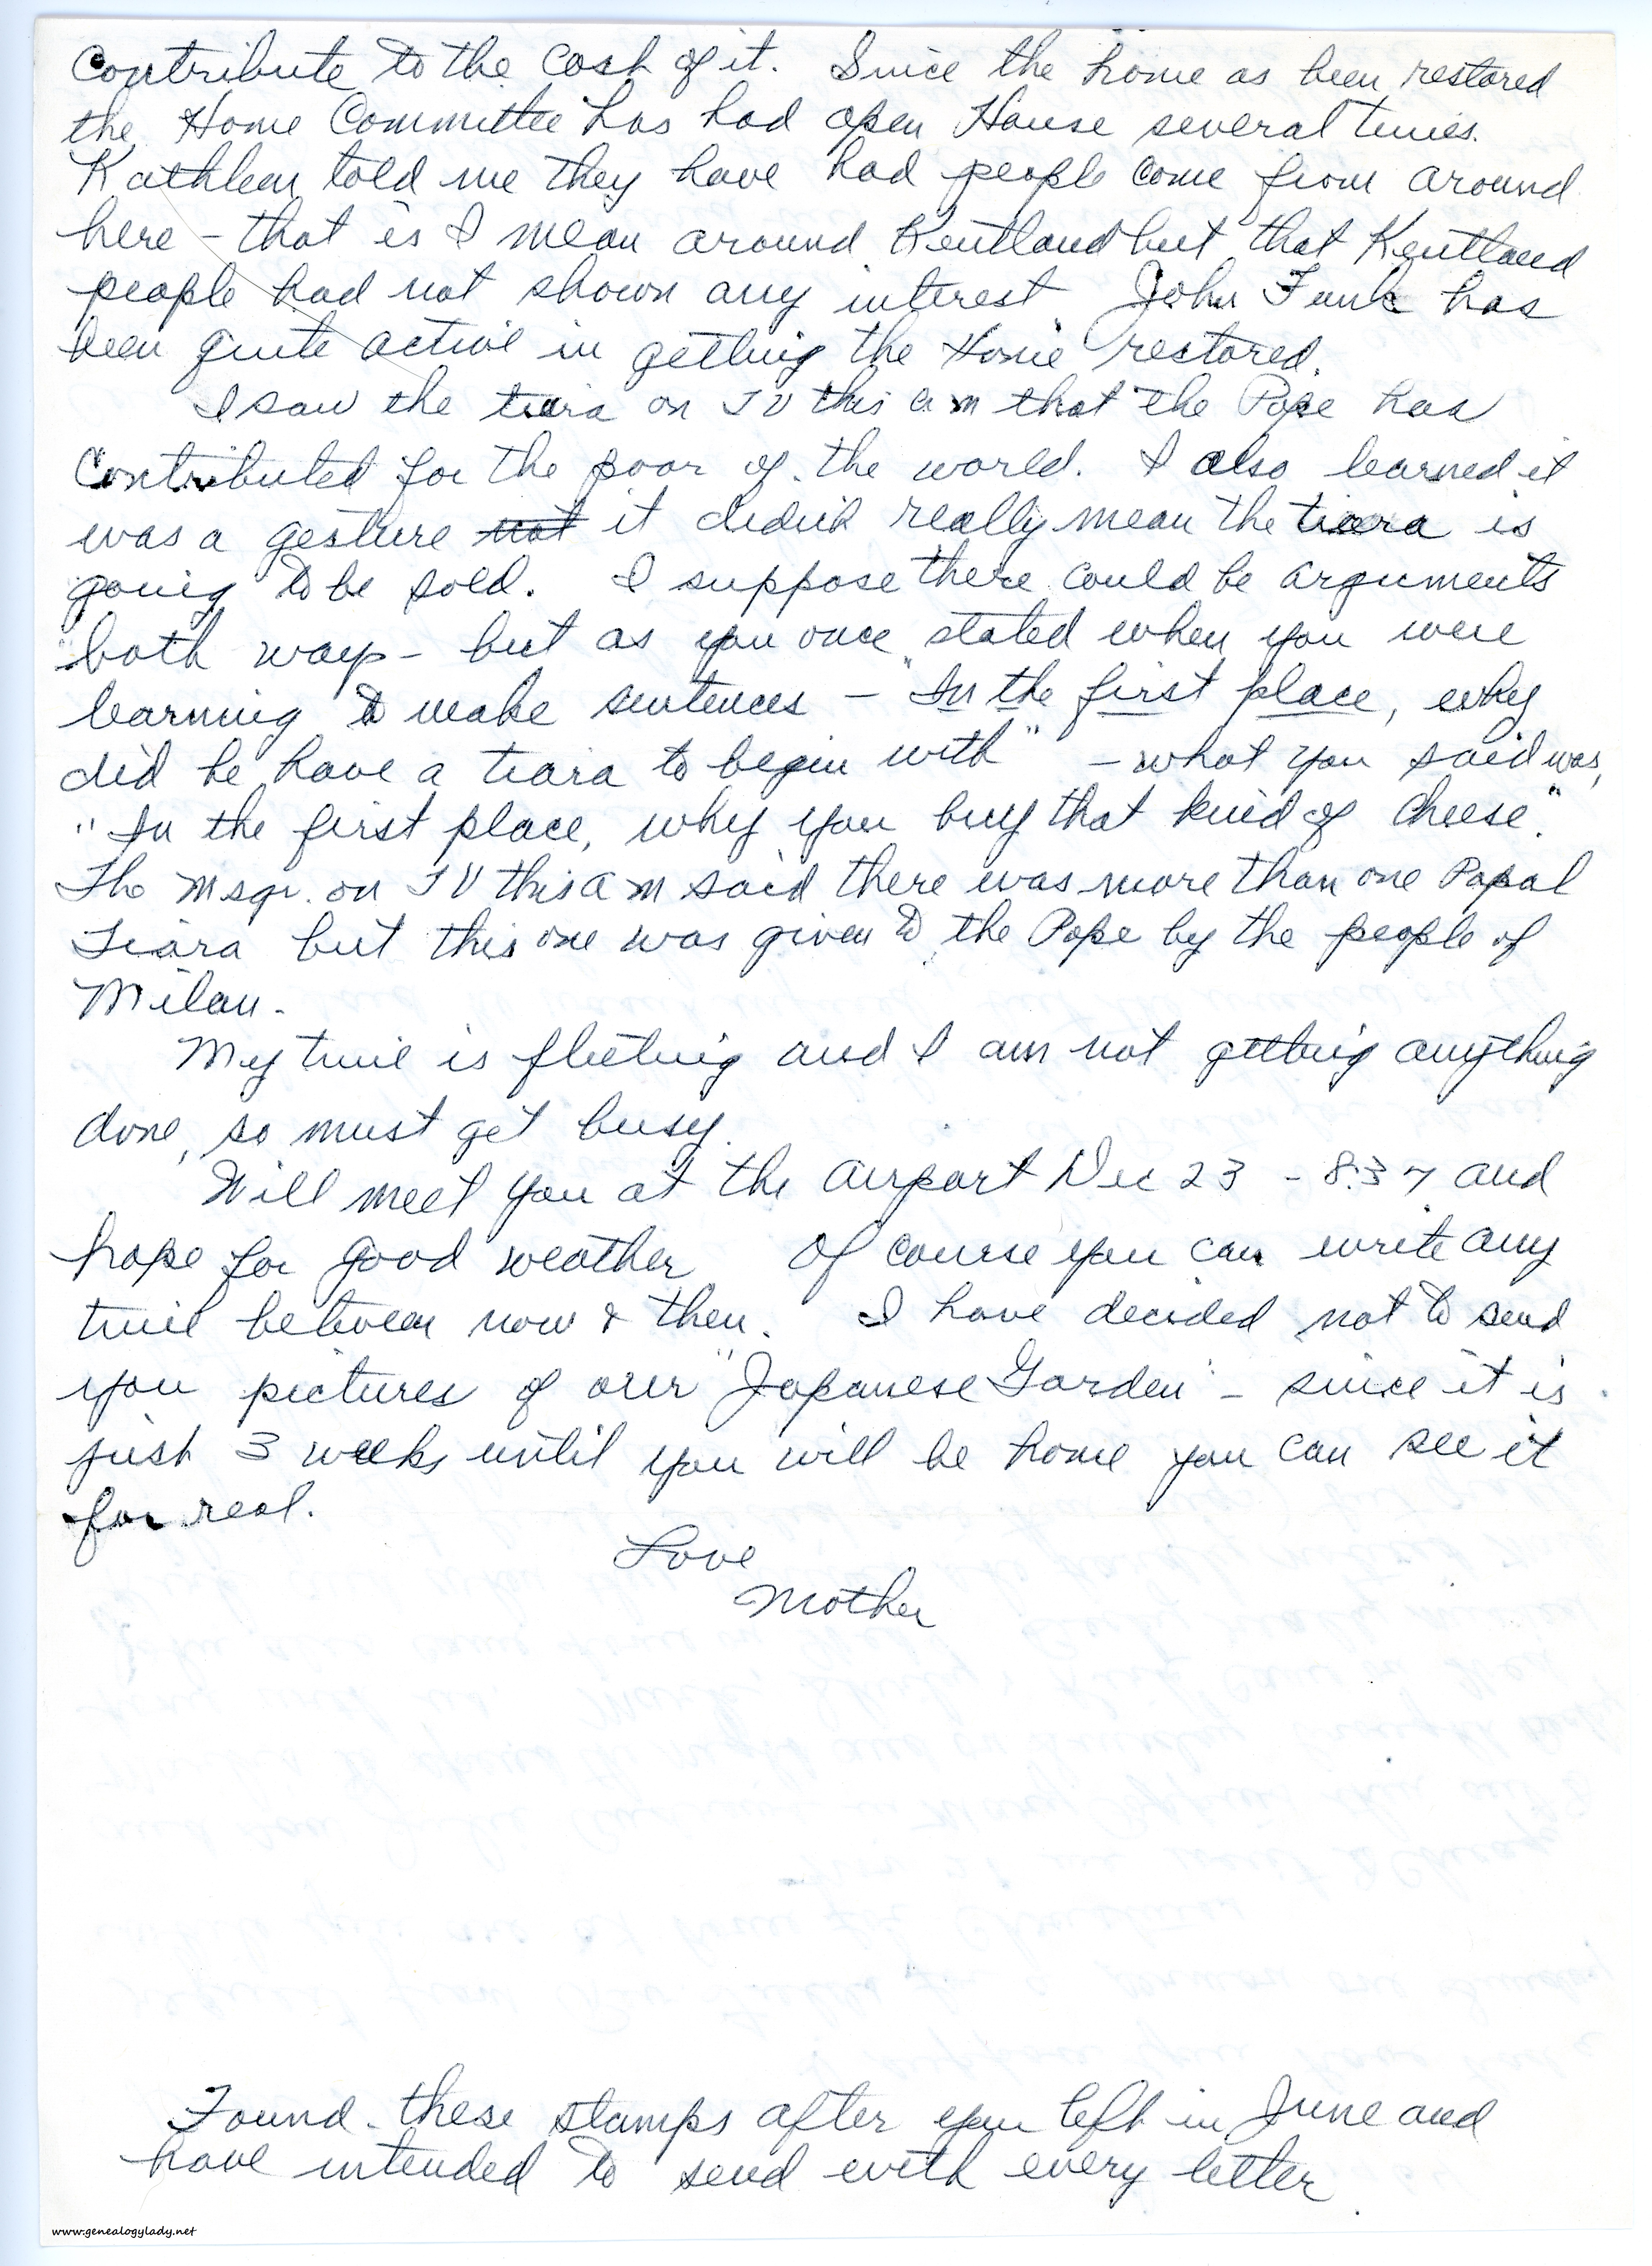 Contribute to the cost of it. Since the home as been restored
the Home Committee has had open House several times.
Kathleen told me they have had people come from around
here – that is I mean around Kentland but that Kentland
people had not shown any interest. John Funk has
been quite active in getting the Home restored.
I saw the tiara on TV this am that the Pope has
Contributed for the poor of the world. I also learned it
was a gesture not it didn't really mean the tiara is
going to be sold. I suppose there could be arguments
both ways – but as you once stated when you were
learning to make sentences – "In the first place, why
did he have a tiara to begin with" – what you said was,
"In the first place, why you buy that kind of cheese."
The Msgr. on TV this am said there was more than one Papal
Tiara but this one was given to the Pope by the people of
Milan.
My time is fleeting and I am not getting anything
done, so must get busy.
Will meet you at the airport Dec 23 – 8:37 and
hope for good weather Of course you can write any
time between now & then. I have decided not to send
you pictures of our "Japanese Garden" – since it is
just 3 weeks until you will be home you can see it
for real.
Love
Mother
Found these stamps after you left in June and
have intended to send with every letter.
www.genealogylady.net